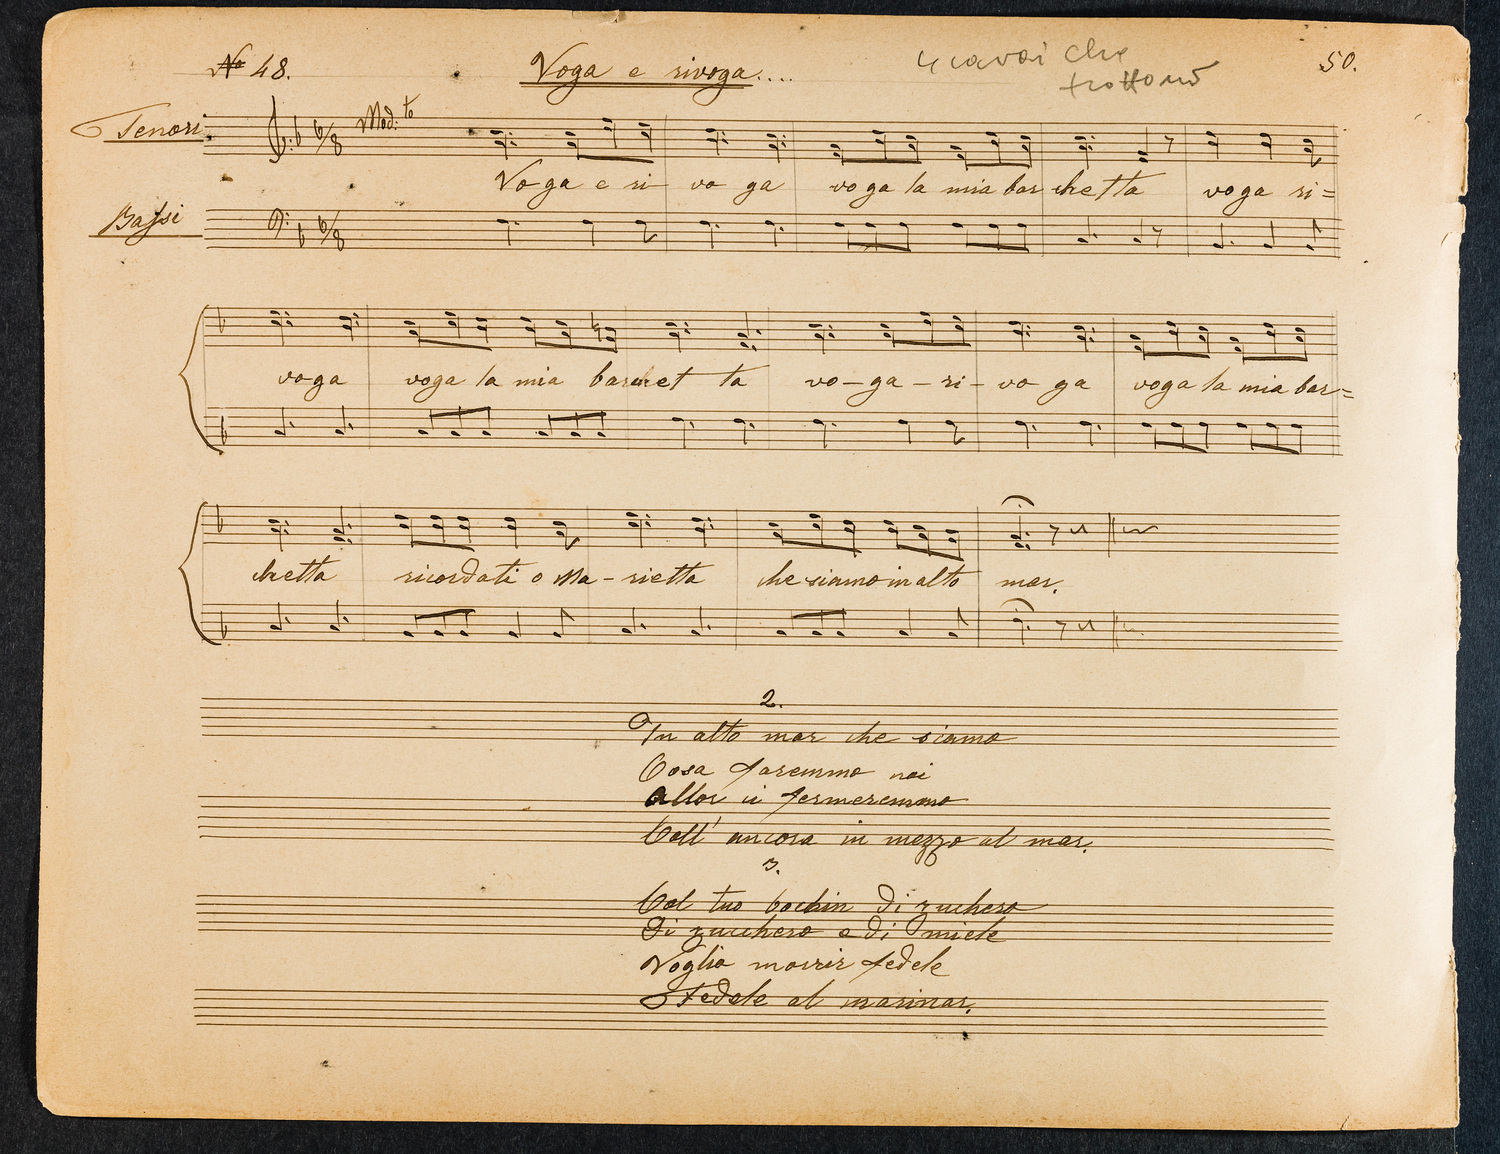 No 48.
Voga e rivoga....
4 cavai che
trottano
50.
Tenori
Mod:to
Voga e ri vo ga voga la mia bar chetta voga ri=
Bassi
voga voga la mia barchet ta vo-ga-ri-vo ga voga la mia bar=
chetta ricordati o Ma-rietta che siamo in alto mar.
2.
In alto mar che siamo
Cosa faremmo noi
Allor ci fermeremmo
Coll' ancora in mezzo al mar.
3.
Col tuo bochin di zuchero
Di zucchero e di miele
Voglio morrir fedele
Fedele al marinar.